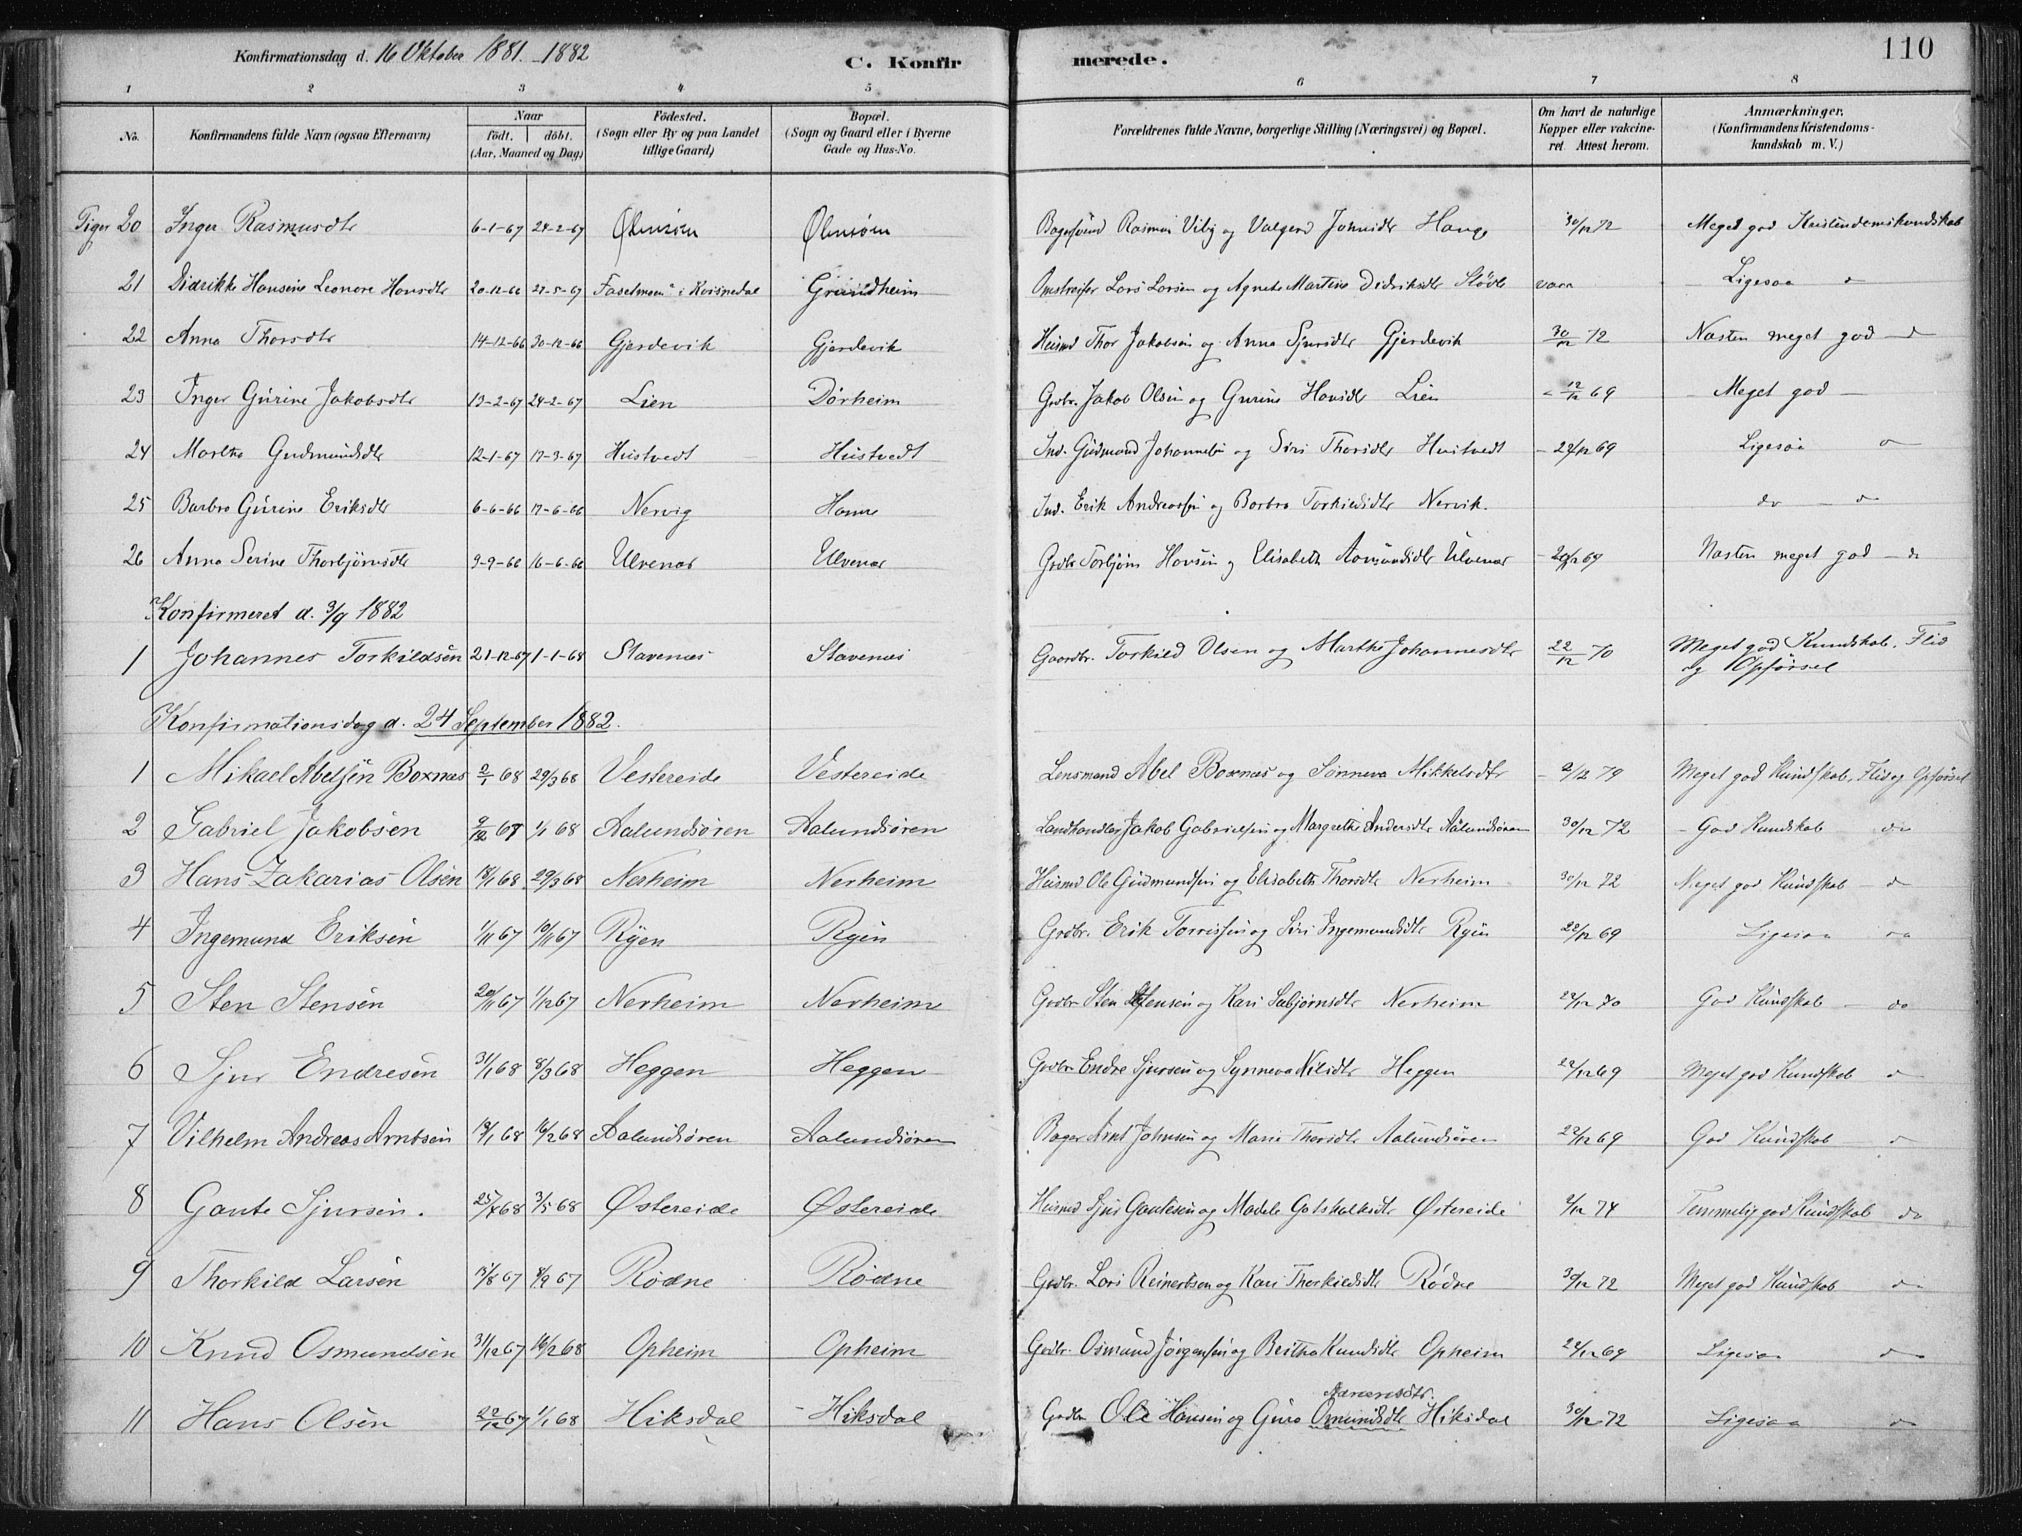 Konfirmationsdag d. 16 Oktober 1881. 1882 C. Konfirmerede. 110
1 2 3 4 5 6 7 8
No. Konfirmandens fulde Navn (ogsaa Efternavn) Naar födt. döbt. (Aar, Maaned og Dag) Födested. (Sogn eller By og paa Landet tillige Gaard) Bopæl. (Sogn og Gaard eller i Byerne Gade og Hus-No. Forældrenes fulde Navne, borgerlige Stilling (Næringsvei) og Bopæl. Om havt de naturlige Kopper eller vakcineret. Attest herom. Anmærkninger. (Konfirmandens Kristendomskundskab m. V.)
Piger 20 Inger Rasmusdtr 6-1-67 24-2-67 Ølensøen Ølensøen Rasmus Viby og Valgerd Johnsdtr Hauge 30/12 72 Meget god Kristendomskundskab
21 Didrikke Hansine Leonore Hansdtr 20-12-66 27-5-67 i Kvisnedal Grindheim Lars Larsen og Agnete Martine Didriksdtr vacc Ligesaa do
22 Anna Thorsdtr 14-12-66 30-12-66 Gjerdevik Gjerdevik Husmd Thor Jakobsen og Anna Sjursdtr Gjerdevik 30/12 72 Næsten meget god do
23 Inger Gurine Jakobsdtr 13-2-67 24-2-67 Lien Dørheim Grdbr. Jakob Olsen og Gurine Hansdtr Lien 12/12 69 Meget god
24 Martha Gudmundsdtr 12-1-67 17-3-67 Hustvedt Hustvedt Ind. Gudmund Johannesen og Siri Thorsdtr Hustvedt 22/12 69 Ligesaa do
25 Barbro Gurine Eriksdtr 6-6-66 17-6-66 Nervig Hamre Ind. Erik Andreassen og Barbro Torkildsdtr Nervik. do do
26 Anna Serine Thorbjørnsdtr 9-9-66 16-6-66 Ulvenæs Ulvenæs Grdbr Torbjørn Hansen og Elisabeth Aamundsdtr Ulvenæs 22/12 69 Næsten meget god do
Konfirmeret d. 3/9 1882
1 Johannes Torkildsen 21-12-67 1-1-68 Stavenæs Stavenæs Gaardbr. Torkild Olsen og Marthe Johannesdtr 22/12 70 Meget god Kundskab. Flid
og Opførsel
Konfirmationsdag d. 24 September 1882.
1 Mikael Abelsen Boxnæs 2/1 68 29/3 68 Vestereide Vestereide Lensmand Abel Boxnæs og Sønneva Mikkelsdtr 2/12 79 Meget god Kundskab, Flid og Opførsel
2 Gabriel Jakobsen 9/12 67 1/1 68 Aalundsøren Aalundsøren Landhandler Jakob Gabrielsen og Margrethe Andersdtr Aalundsøren 30/12 72 God Kundskab do
3 Hans Zakarias Olsen 18/1 68 29/3 68 Nerheim Nerheim Husmd Ole Gudmundsen og Elisabeth Thorsdtr Nerheim 30/12 72 Meget god Kundskab do
4 Ingemund Eriksen 1/11 67 10/11 67 Ryen Ryen Grdbr. Erik Torrissen og Siri Ingemundsdtr Ryen 22/12 69 Ligesaa do
5 Sten Stensen 20/11 67 1/12 67 Nerheim Nerheim Grdbr Sten Stensen og Kari Sæbjørnsdtr Nerheim 22/12 70 God Kundskab do
6 Sjur Endresen 31/1 68 8/3 68 Heggen Heggen Grdbr Endre Sjursen og Synneva Nilsdtr Heggen 22/12 69 Meget god Kundskab do
7 Vilhelm Andreas Arntsen 18/1 68 16/2 68 Aalundsøren Aalundsøren Bager Arnt Johnsen og Marie Thorsdtr Aalundsøren 22/12 69 God Kundskab do
8 Gaute Sjursen. 25/4 68 3/5 68 Østereide Østereide Husmd Sjur Gautesen og Madele Gotskalksdtr Østereide 2/12 74 Temmelig god Kundskab do
9 Thorkild Larsen 15/8 67 8/9 67 Rödne Rödne Grdbr. Lars Reinertsen og Kari Thorkildsdtr Rödne 30/12 72 Meget god Kundskab do
10 Knud Osmundsen 31/12 67 16/2 68 Opheim Opheim Grdbr. Osmund Jørgensen og Bertha Knudsdtr Opheim 22/12 69 Ligesaa do
11 Hans Olsen 22/12 67 1/1 68 Hiksdal Hiksdal Grdbr Ole Hansen og Guro Omundsdtr Hiksdal 30/12 72 Ligesaa do